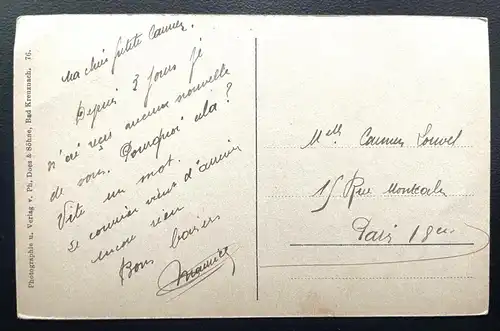 Photographie u. Verlag v. Ph. Doss & Söhne, Bad Kreuznach. 76.
Ma chère petite Carmen.
Depuis 2 jours je
n'ai reçu aucune nouvelle
de vous. Pourquoi cela ?
Vite un mot.
Le courrier vient d'arriver
encore rien
Bons baisers
Maurice
Melle Carmen Louvel
15 Rue Montcalm
Paris 18em